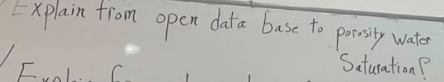 Explain from open data base to porosity water
Saturation?